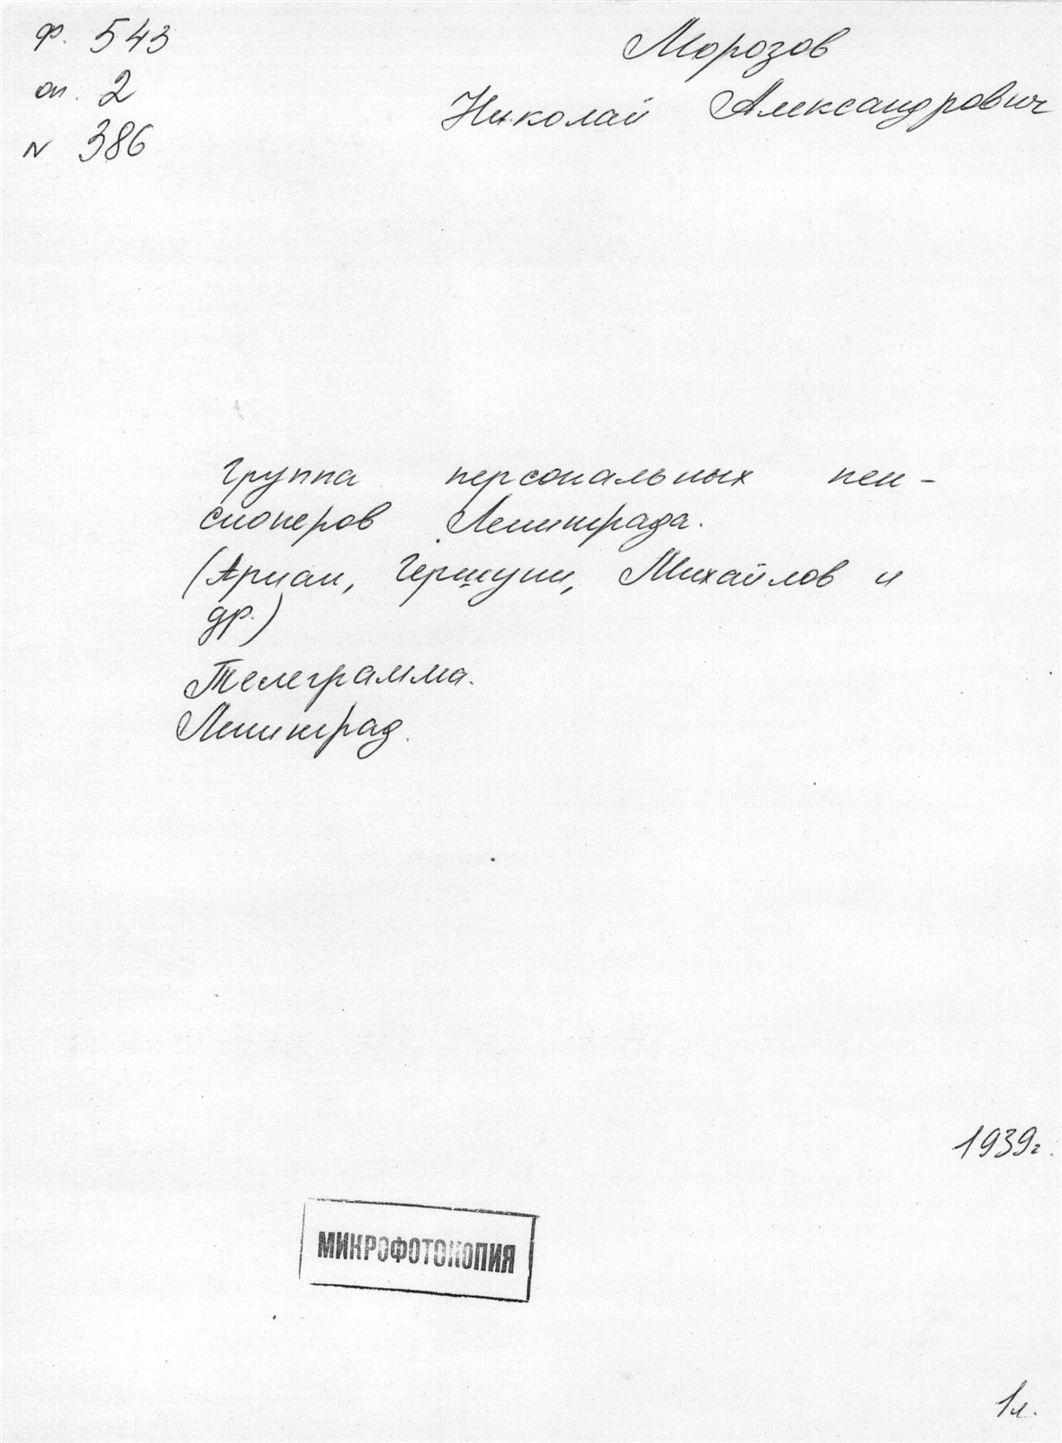 Ф. 543
оп. 2
N 386
Морозов
Николай Александрович
Группа персональных пен-
сионеров Ленинграда.
(Ариан, Гершуни, Михайлов и
др.)
Телеграмма.
Ленинград.
1939г.
МИКРОФОТОКОПИЯ
1л.